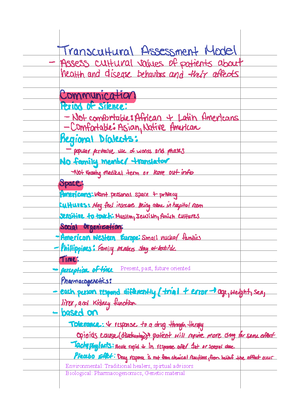 Transcultural Assessment Model
- Assess cultural values of patients about
health and disease behaviors and their affects
Communication
Period of Silence:
- Not comfortable: African + Latin Americans
- Comfortable: Asian, Native American
Regional Dialects:
- popular pervasive use of words and phrases
No family member translator
- Not knowing medical term or leave out info
Space:
Americans: Want personal space + privacy
Cultures: May feel insecure being alone in hospital room
Sensitive to touch: Muslim, Jewish, Polish cultures
Social Organization:
- American Western Europe: Small nuclear families
- Phillippines: Family members stay at bedside
Time:
- perception of time Present, past, future oriented
Pharmacogenetics:
- each person respond differently (trial + error → age, weight, sex,
liver, and kidney function
- based on
Tolerance: ↓ response to a drug though therapy
Opioids cause: patient will require more drug for same effect
Tachyphylaxis: rapid ↓ in response after 1st or several
Placebo effect: Drug response is not from chemical
Environmental: Traditional healers, spiritual advisors
Biological: Pharmacogenomics, Genetic material